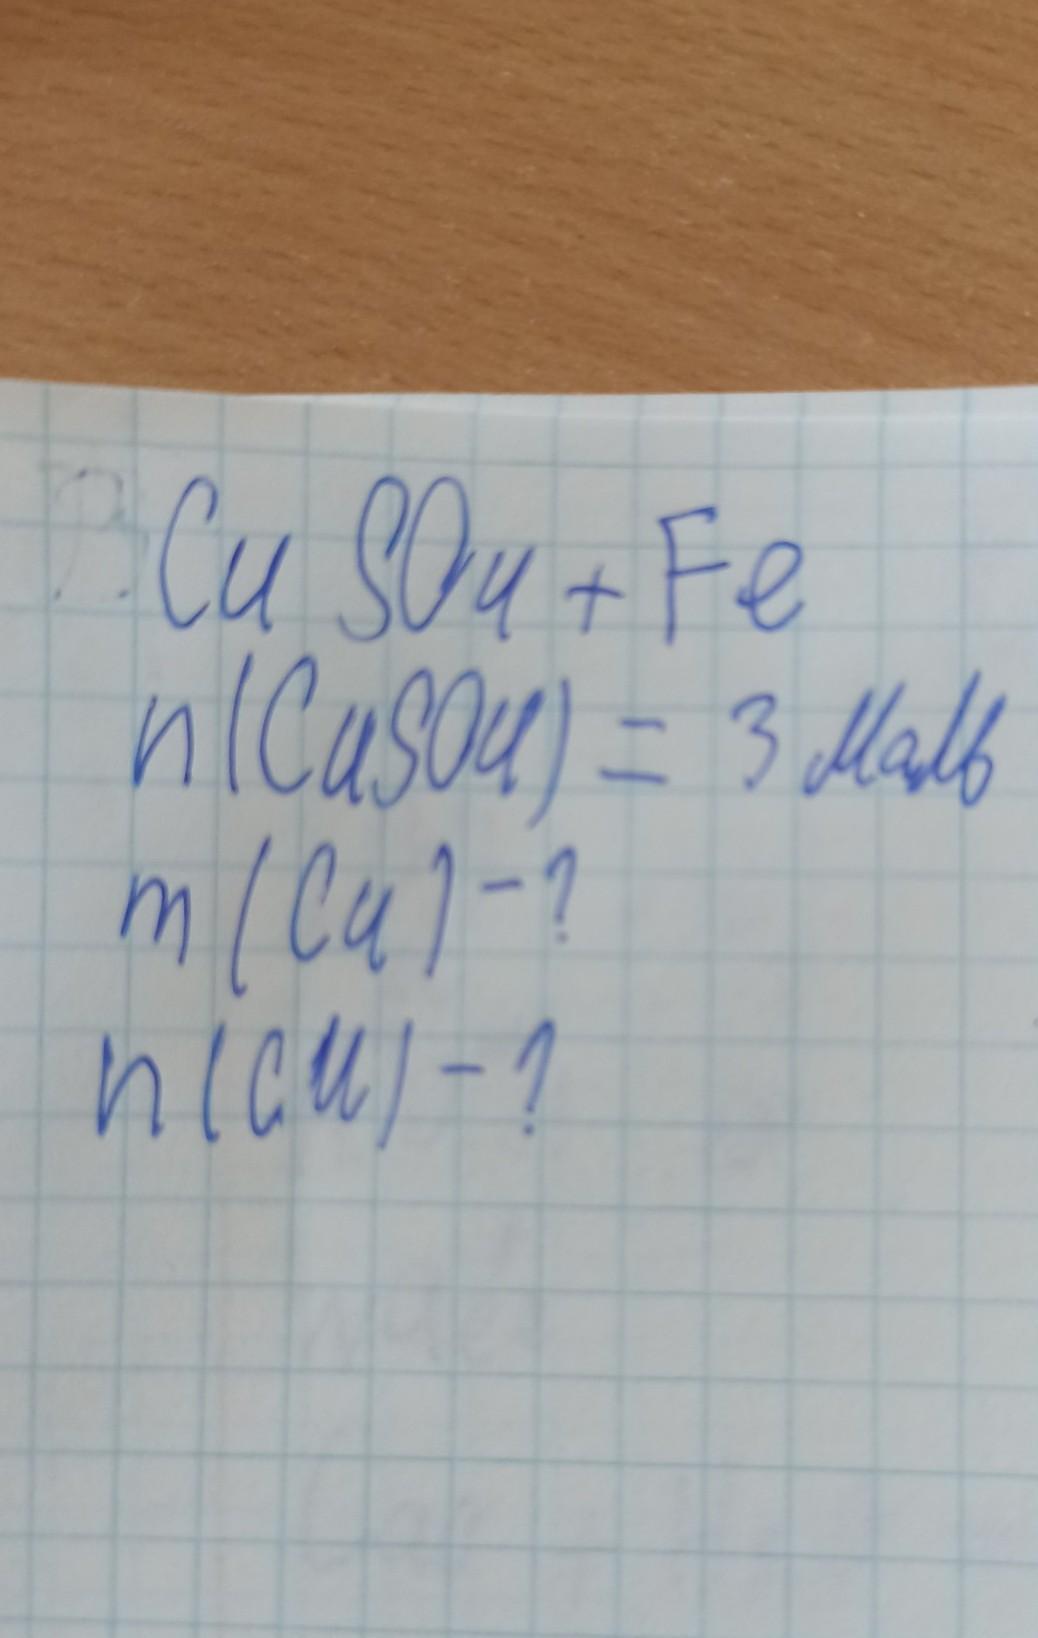 Cu SO4 + Fe
n(CuSO4) = 3 маль
m (Cu) - ?
n(Cu) - ?